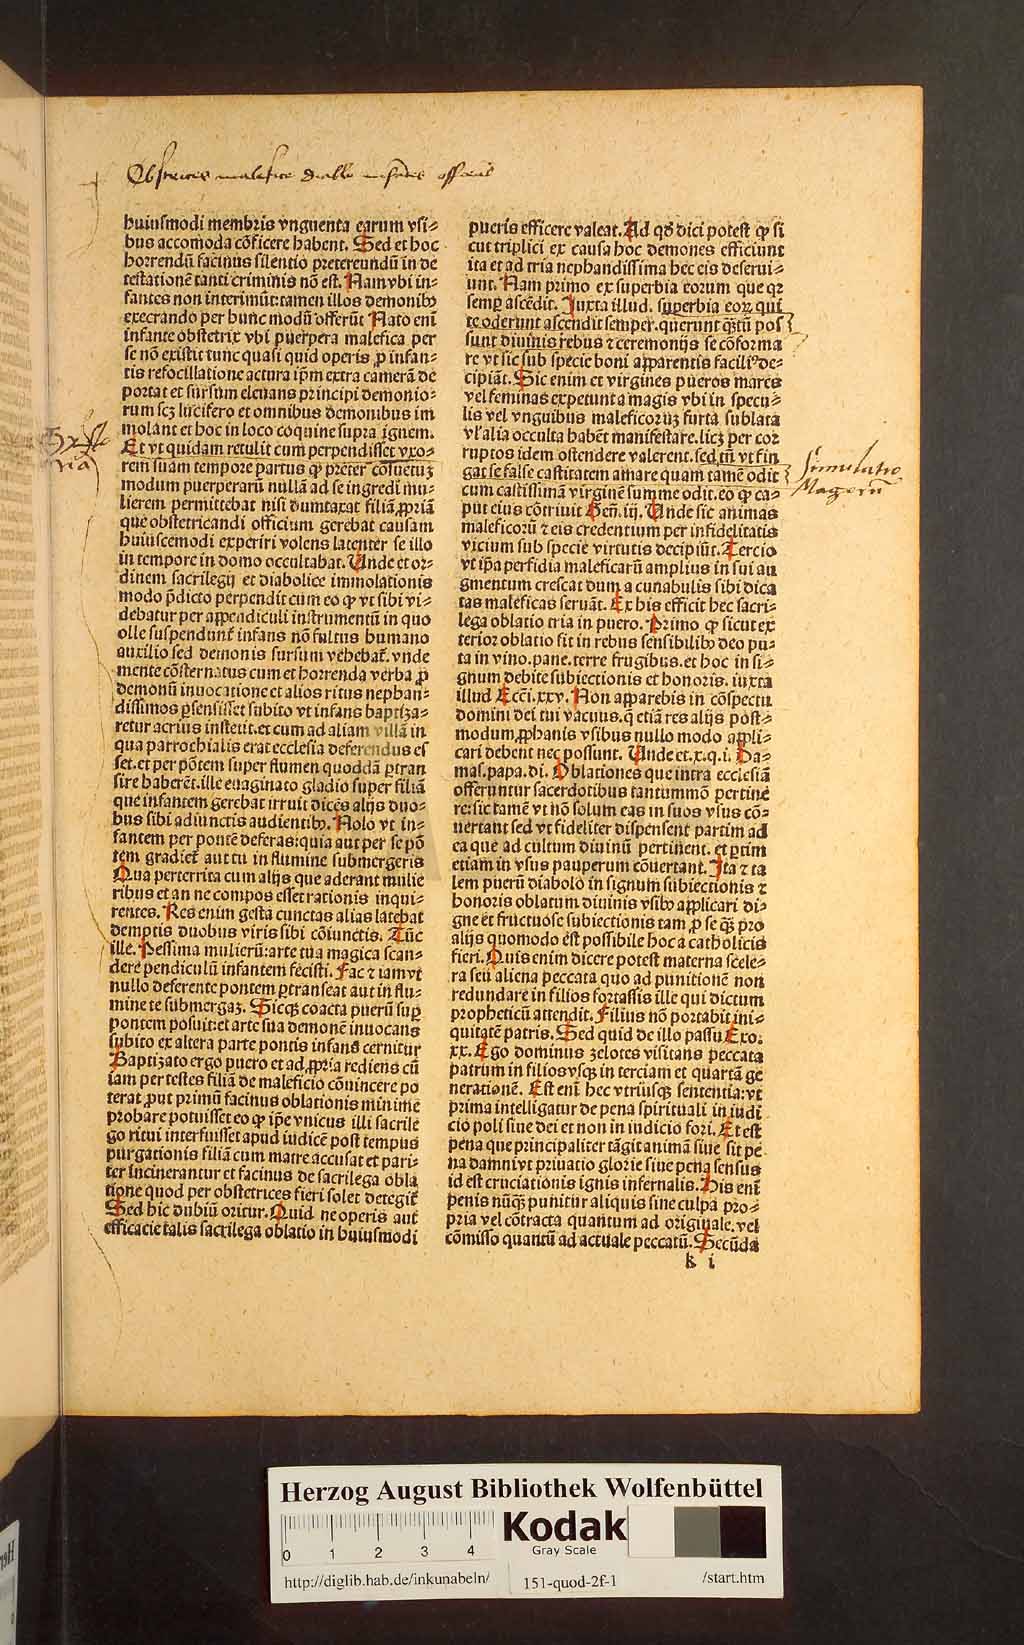 Obstetrices malefice diabolo infantes offerunt
huiusmodi membris vnguenta earum vsi⸗
bus accomoda cōficere habent. Sed et hoc
horrendū facinus silentio pretereundū in de
testationē tanti criminis nō est. Nam vbi in⸗
fantes non interimūt: tamen illos demonibꝰ
execrando per hunc modū offerūt Nato enī
infante obstetrix vbi puerpera malefica per
se nō existit tunc quasi quid operis ꝓ infan⸗
tis refocillatione actura ip̄m extra camerā de
portat et sursum eleuans principi demonio⸗
rum scꝫ lucifero et omnibus demonibus im
molant et hoc in loco coquine supra ignem.
Et vt quidam retulit cum perpendisset vxo⸗
rem suam tempore partus ꝙ preter cōsuetuꝫ
modum puerperarū nullā ad se ingredi mu⸗
lierem permittebat nisi dumtaxat filiā ꝓpriā
que obstetricandi officium gerebat causam
huiuscemodi experiri volens latenter se illo
in tempore in domo occultabat. Unde et or⸗
dinem sacrilegij et diabolice immolationis
modo p̄dicto perpendit cum eo ꝙ vt sibi vi⸗
debatur per appendiculi instrumentū in quo
olle suspendunt̄ infans nō fultus humano
auxilio sed demonis sursum vehebat̄. vnde
mente cōsternatus cum et horrenda verba ꝑ
demonū inuocatione et alios ritus nephan⸗
dissimos ꝑsensisset subito vt infans baptiza⸗
retur acrius institit. et cum ad aliam villā in
qua parrochialis erat ecclesia deferendus es
set. et per pōtem super flumen quoddā ꝑtran
sire haberēt. ille euaginato gladio super filiā
que infantem gerebat irruit dicēs alijs duo⸗
bus sibi adiunctis audientibꝰ. Nolo vt in⸗
fantem per pontē deferas: quia aut per se pō
tem gradiet̄ aut tu in flumine submergeris
Qua perterrita cum alijs que aderant mulie
ribus et an ne compos esset rationis inqui⸗
rentes. Res enim gesta cunctas alias latebat
demptis duobus viris sibi cōiunctis. Tūc
ille. Pessima mulierū: arte tua magica scan⸗
dere pendiculū infantem fecisti. Fac ⁊ iam vt
nullo deferente pontem ꝑtranseat aut in flu⸗
mine te submergaꝫ. Sicqꝫ coacta puerū suꝑ
pontem posuit: et arte sua demonē inuocans
subito ex altera parte pontis infans cernitur
Baptizato ergo puero et ad ꝓpria rediens cū
iam per testes filiā de maleficio cōuincere po
terat ꝓut primū facinus oblationis minime
probare potuisset eo ꝙ ip̄e vnicus illi sacrile
go ritui interfuisset apud iudicē post tempus
purgationis filiā cum matre accusat et pari⸗
ter incinerantur et facinus de sacrilega obla
tione quod per obstetrices fieri solet detegit̄
Sed hic dubiū oritur. Quid ne operis aut
efficacie talis sacrilega oblatio in huiusmodi
pueris efficere valeat. Ad qd̄ dici potest ꝙ si
cut triplici ex causa hoc demones efficiunt
ita et ad tria nephandissima hec eis deserui⸗
unt. Nam primo ex superbia eorum que qꝛ
semꝑ ascēdit. Juxta illud. superbia eoꝝ qui
te oderunt ascendit semper. querunt qͣtū pos
sunt diuinis rebus ⁊ ceremonijs se cōforma
re vt sic sub specie boni apparentis faciliꝰ de⸗
cipiāt. Sic enim et virgines pueros mares
vel feminas expetunt a magis vbi in specu⸗
lis vel vnguibus maleficoruꝫ furta sublata
vl̓ alia occulta habēt manifestare. licꝫ per cor
ruptos idem ostendere valerent. sed tn̄ vt fin
gat se false castitatem amare quam tamē odit
cum castissimā virginē summe odit. eo ꝙ ca⸗
put eius cōtriuit Gen̄. iij. Unde sic animas
maleficorū ⁊ eis credentium per infidelitatis
vicium sub specie virtutis decipiūt. Tercio
vt ip̄a perfidia maleficarū amplius in sui au
gmentum crescat dum a cunabulis sibi dica
tas maleficas seruāt. Ex his efficit hec sacri⸗
lega oblatio tria in puero. Primo ꝙ sicut ex
terior oblatio fit in rebus sensibilibꝰ deo pu⸗
ta in vino. pane. terre frugibus. et hoc in si⸗
gnum debite subiectionis et honoris. iuxta
illud Ecc̄i. xxv. Non apparebis in cōspectu
domini dei tui vacuus. q̄ etiā res alijs post⸗
modum, ꝓphanis vsibus nullo modo appli⸗
cari debent nec possunt. Unde et. x. q. i. Da⸗
mas. papa. di. Oblationes que intra ecclesiā
offeruntur sacerdotibus tantummō pertine
re: sic tamē vt nō solum eas in suos vsus cō⸗
uertant sed vt fideliter dispensent partim ad
ea que ad cultum diuinū pertinent. et ꝑtim
etiam in vsus pauperum cōuertant. Ita ⁊ ta
lem puerū diabolo in signum subiectionis ⁊
honoris oblatum diuinis vsibꝰ applicari di⸗
gne et fructuose subiectionis tam ꝓ se qͣꝫ pro
alijs quomodo est possibile hoc a catholicis
fieri. Quis enim dicere potest materna scele⸗
ra seu aliena peccata quo ad punitionē non
redundare in filios fortassis ille qui dictum
propheticū attendit. Filius nō portabit ini⸗
quitatē patris. Sed quid de illo passu Exo.
xx. Ego dominus zelotes visitans peccata
patrum in filios vsqꝫ in terciam et quartā ge
nerationē. Est enī hec vtriusqꝫ sententia: vt
prima intelligatur de pena spirituali in iudi
cio poli siue dei et non in iudicio fori. Et est
pena que principaliter tāgit animā siue sit pe
na damni vt priuatio glorie siue pena sensus
id est cruciationis ignis infernalis. His enī
penis nūqͣꝫ punitur aliquis sine culpa pro⸗
pria vel cōtracta quantum ad originale. vel
cōmisso quantū ad actuale peccatū. Secūda
k i
Simulatio
Magorū
Herzog August Bibliothek Wolfenbüttel
Kodak
Gray Scale
0 1 2 3 4
http://diglib.hab.de/inkunabeln/ 151-quod-2f-1 /start.htm